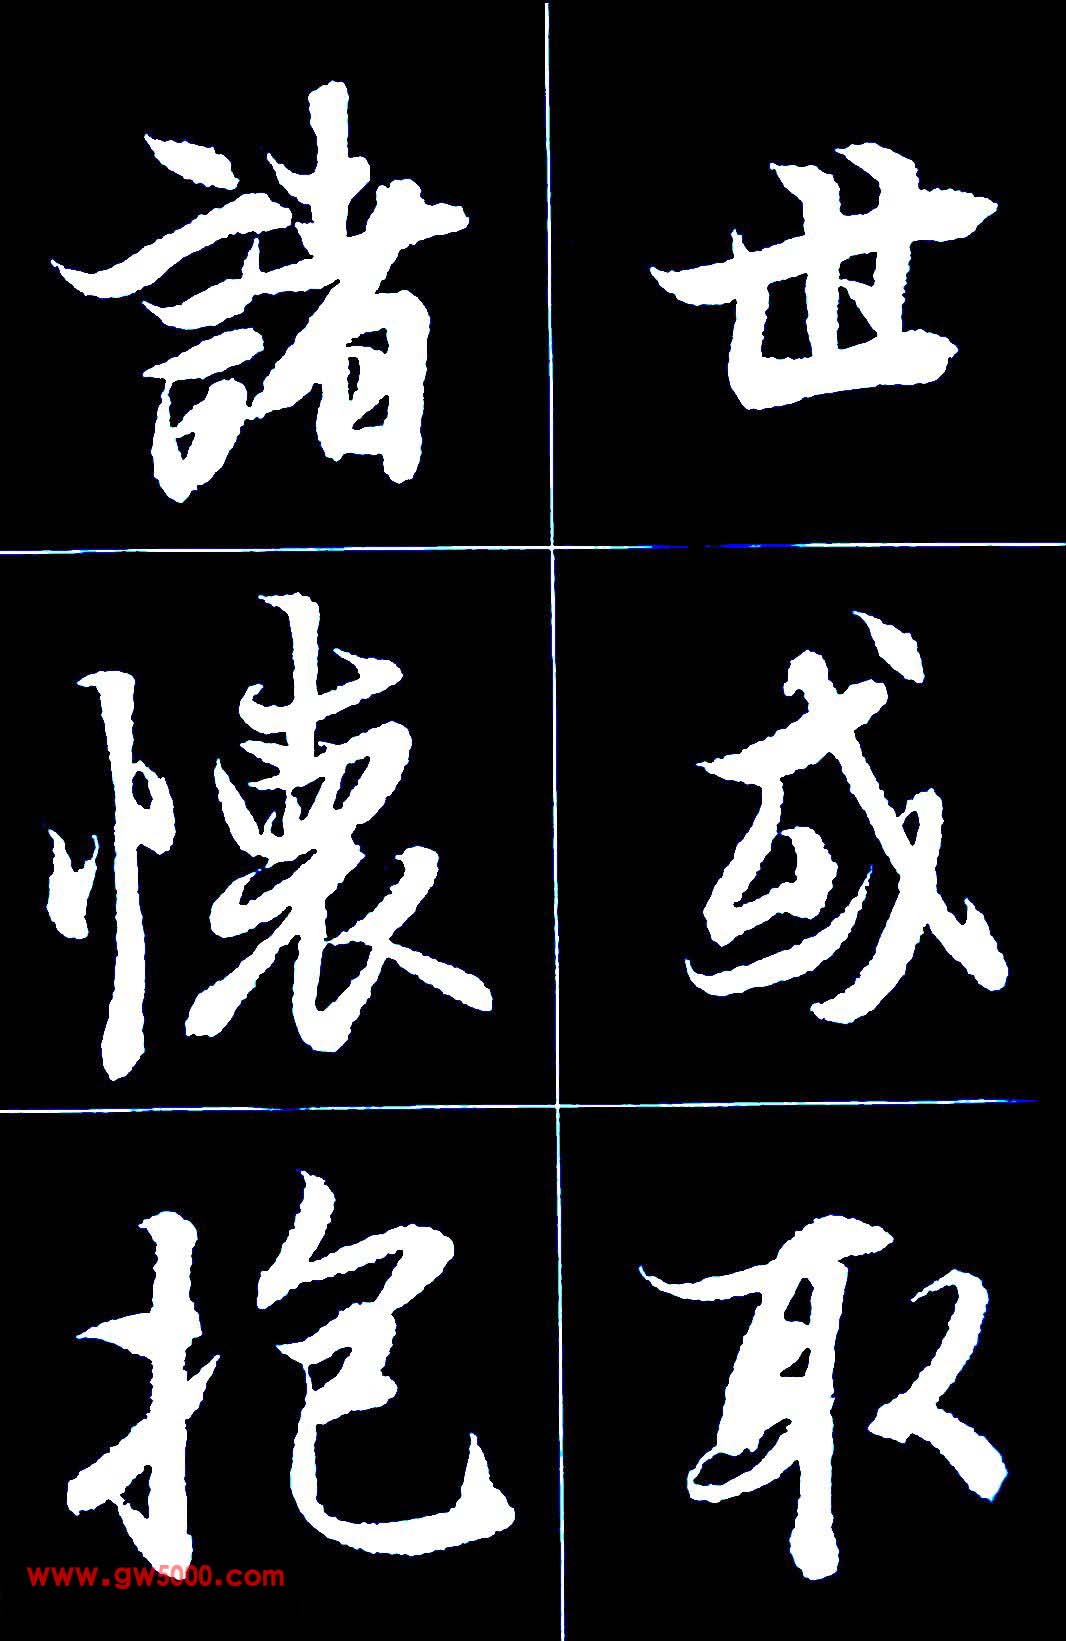 世或取
諸懷抱
www.gw5000.com